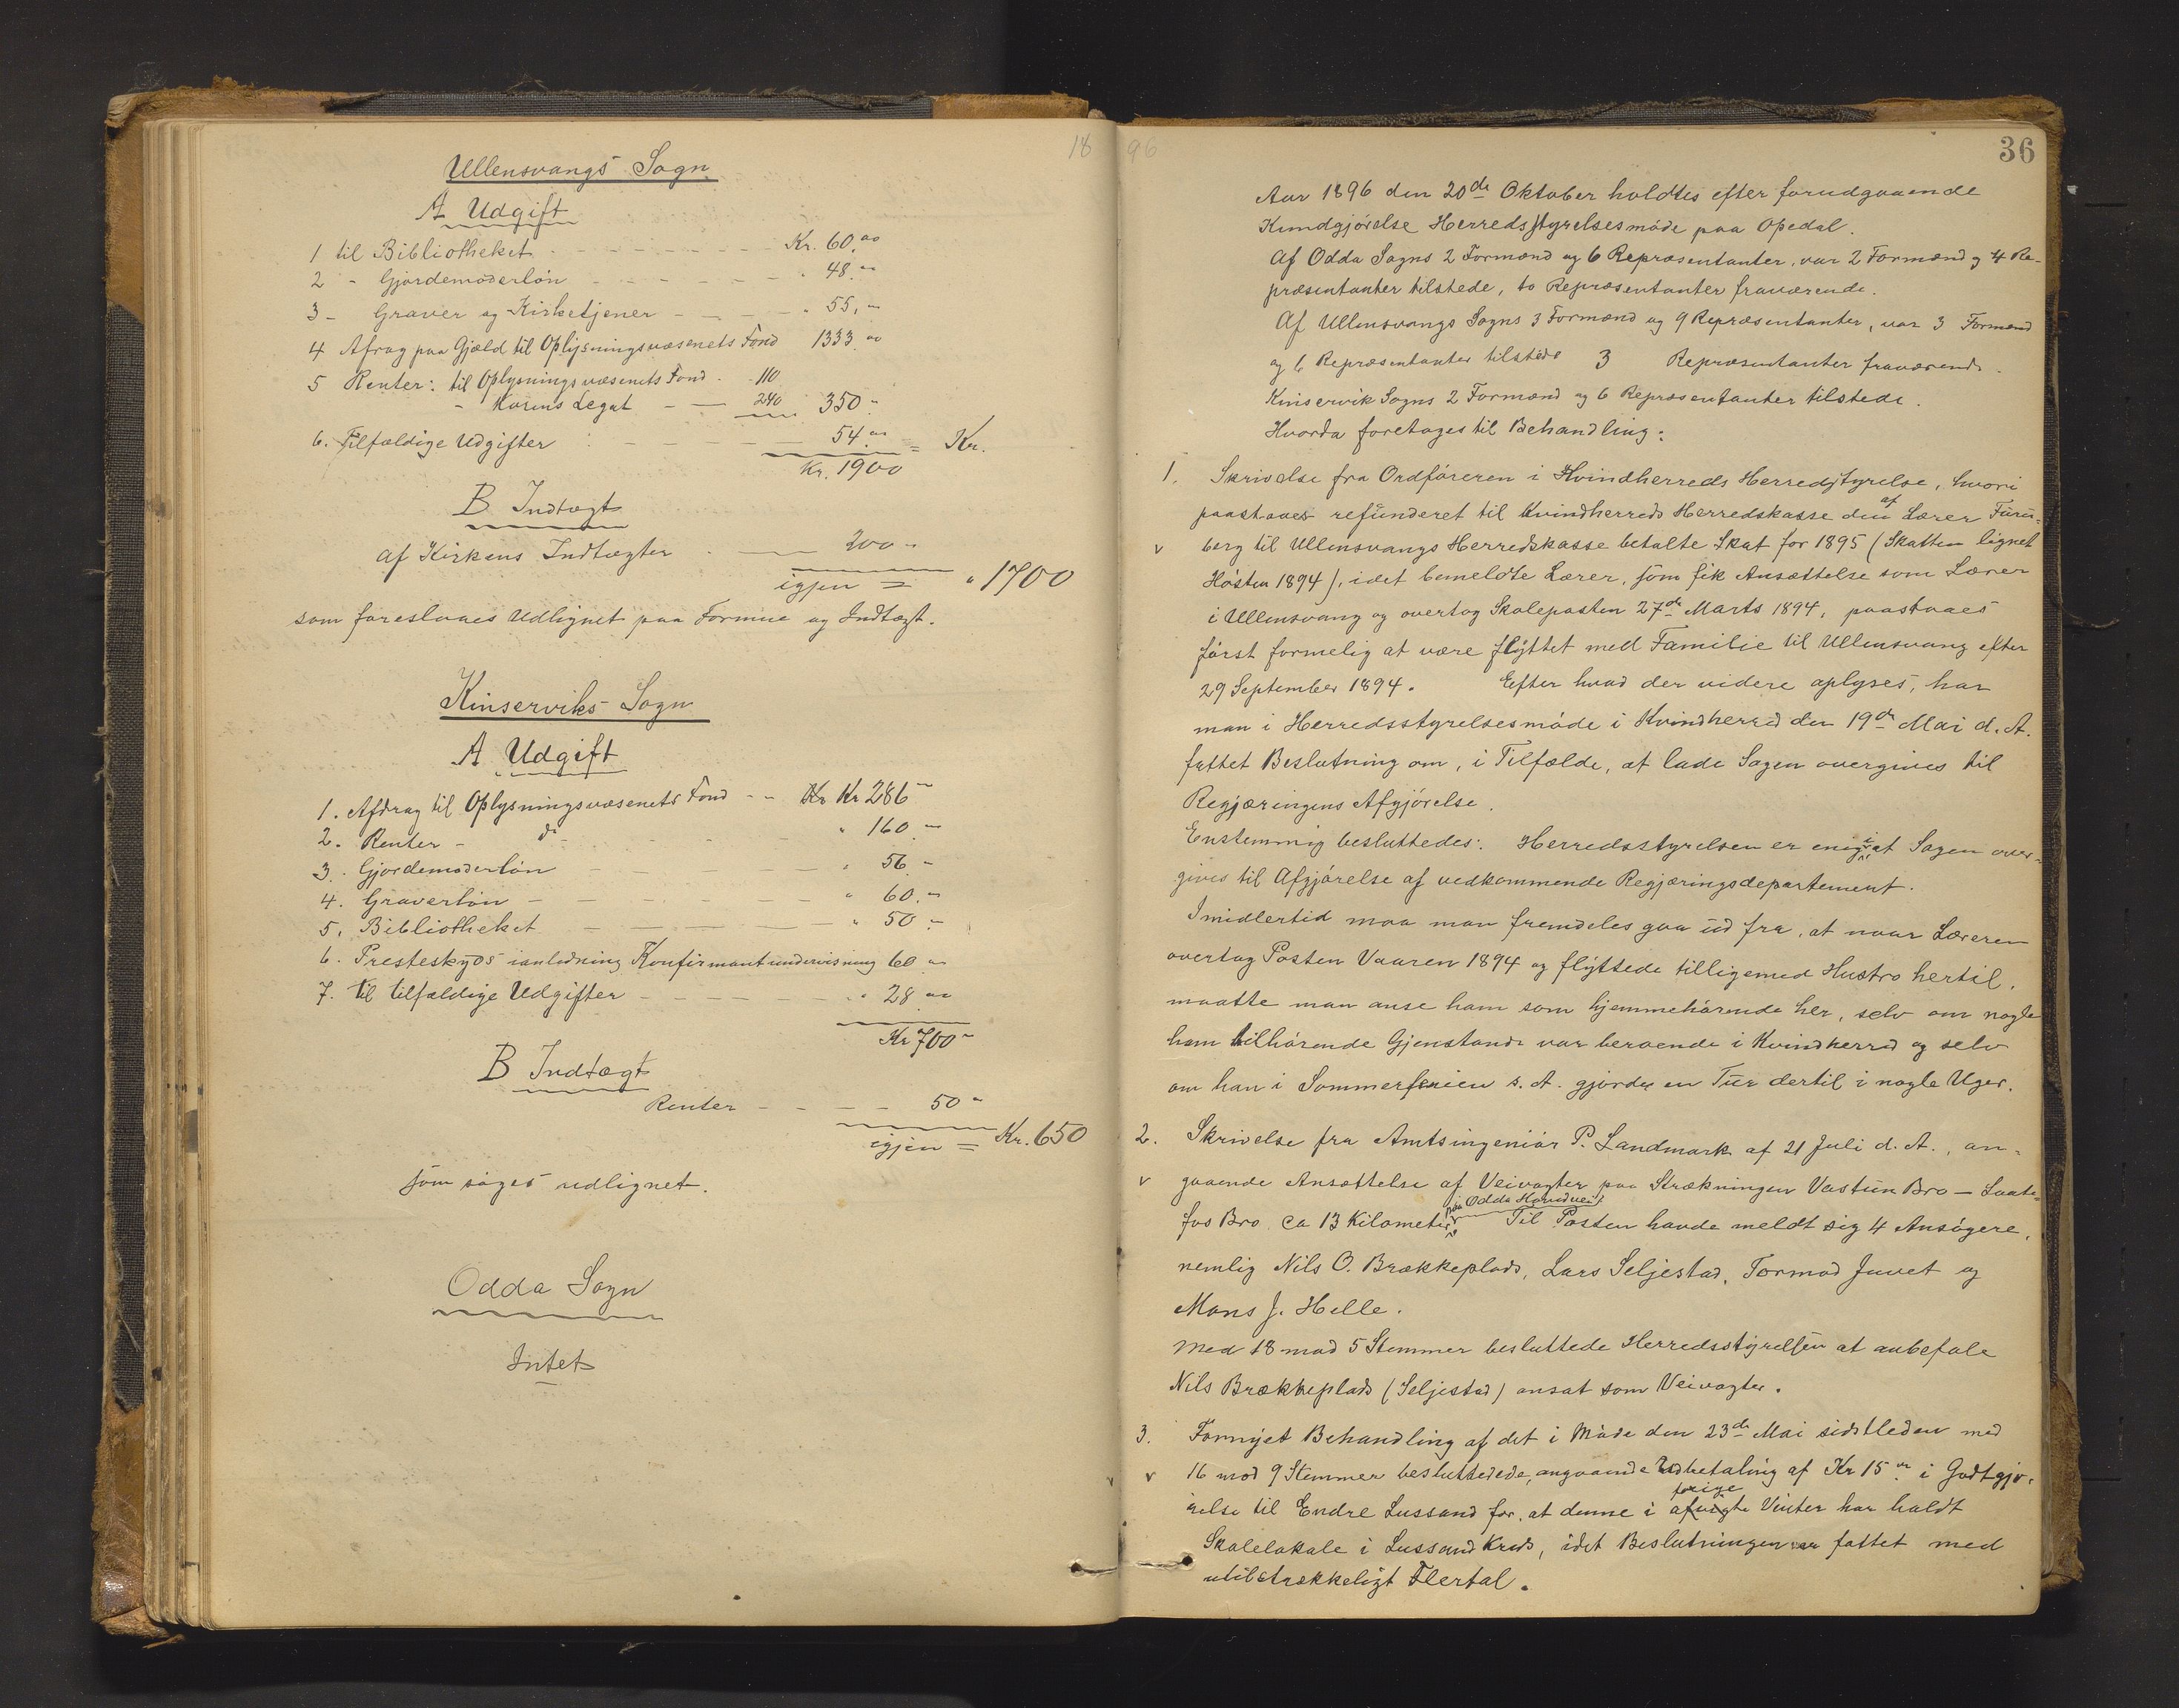 18
Ullensvangs Sogn
A Udgift
1 til Bibliotheket - - - - Kr. 60.00
2 - Gjordemoderløn - - - - " 48.00
3 - Graver og Kirketjener - - - " 55,-
4 Afrag paa Gjæld til Oplysningsvæsenets Fond 1333.00
5 Renter: til Oplysningsvæsenets Fond - 110
- Legat - - 240 350.-
6. Tilfældige Udgifter - - - 54.00 = Kr.
Kr. 1900
B Indtægt
af Kirkens Indtægter - - 200 -
igjen = " 1700
som foreslaaes Udlignet paa Formue og Indtægt.
Kinserviks Sogn
A Udgift
1. Afdrag til Oplysningsvæsenets Fond - - Kr Kr 286 -
2. Renter - do - - - " 160.-
3. Gjordemoderløn - - - " 56 -
4. Graverløn - - - " 60.-
5. Bibliotheket - - - " 50.-
6. Presteskyds ianledning Konfirmantundervisning 60 -
7. til tilfældige Udgifter - - - " 28 00
Kr 700 -
B Indtægt
Renter - - - 50 -
igjen = Kr. 650
som søges udlignet.
Odda Sogn
Intet
96
36
Aar 1896 den 20de Oktober holdtes efter forudgaaende
Kundgjørelse Herredsstyrelsesmøde paa Opedal.
Af Odda Sogns 2 Formænd og 6 Repræsentanter, var 2 Formænd og 4 Re-
præsentanter tilstede, to Repræsentanter fraværende.
Af Ullensvangs Sogns 3 Formænd og 9 Repræsentanter, var 3 Formænd
og 6 Repræsentanter tilstede 3 Repræsentanter fraværende.
Kinservik Sogns 2 Formænd og 6 Repræsentanter tilstede.
Hvorda foretoges til Behandling:
1. Skrivelse fra Ordføreren i Kvindherreds Herredsstyrelse, hvori
paastaaes refunderet til Kvindherreds Herredskasse den af Lærer Furu-
v berg til Ullensvangs Herredskasse betalte Skat for 1895 (Skatten lignet
Høsten 1894), idet bemeldte Lærer, som fik Ansættelse som Lærer
i Ullensvang og overtog Skoleposten 27de Marts 1894, paastaaes
først formelig at være flyttet med Familie til Ullensvang efter
29 September 1894. Efter hvad der videre oplyses, har
man i Herredsstyrelsesmøde i Kvindherred den 19de Mai d. A.
fattet Beslutning om, i Tilfælde, at lade Sagen overgives til
Regjæringens Afgjørelse.
Enstemmig besluttedes: Herredsstyrelsen er enig i at Sagen over-
gives til Afgjørelse af vedkommende Regjæringsdepartement.
Imidlertid maa man fremdeles gaa ud fra, at naar Læreren
overtog Posten Vaaren 1894 og flyttede tilligemed Hustro hertil,
maatte man anse ham som hjemmehørende her, selv om nogle
ham tilhørende Gjenstande var beroende i Kvindherred og selv
om han i Sommerferien s. A. gjorde en Tur dertil i nogle Uger.
2. Skrivelse fra Amtsingeniør P. Landmark af 21 Juli d. A., an-
v gaaende Ansættelse af Veivogter paa Strækningen Vastun Bro - Laate-
fos Bro, ca 13 Kilometer paa Odda Hovedvei. Til Posten havde meldt sig 4 Ansøgere,
nemlig Nils O. Brækkeplads, Lars Seljestad, Tormod Juvet og
Mons J. Helle.
Med 18 mod 5 Stemmer besluttede Herredsstyrelsen at anbefale
Nils Brækkeplads (Seljestad) ansat som Veivogter.
3. Fornyet Behandling af det i Møde den 23de Mai sidstleden med
v v 16 mod 9 Stemmer besluttedede, angaaende Udbetaling af Kr 15.00 i Godtgjø-
relse til Endre Lussand for, at denne i afvigte forige Vinter har holdt
Skolelokale i Lussand Kreds, idet Beslutningen var fattet med
utilstrækkeligt Flertal.